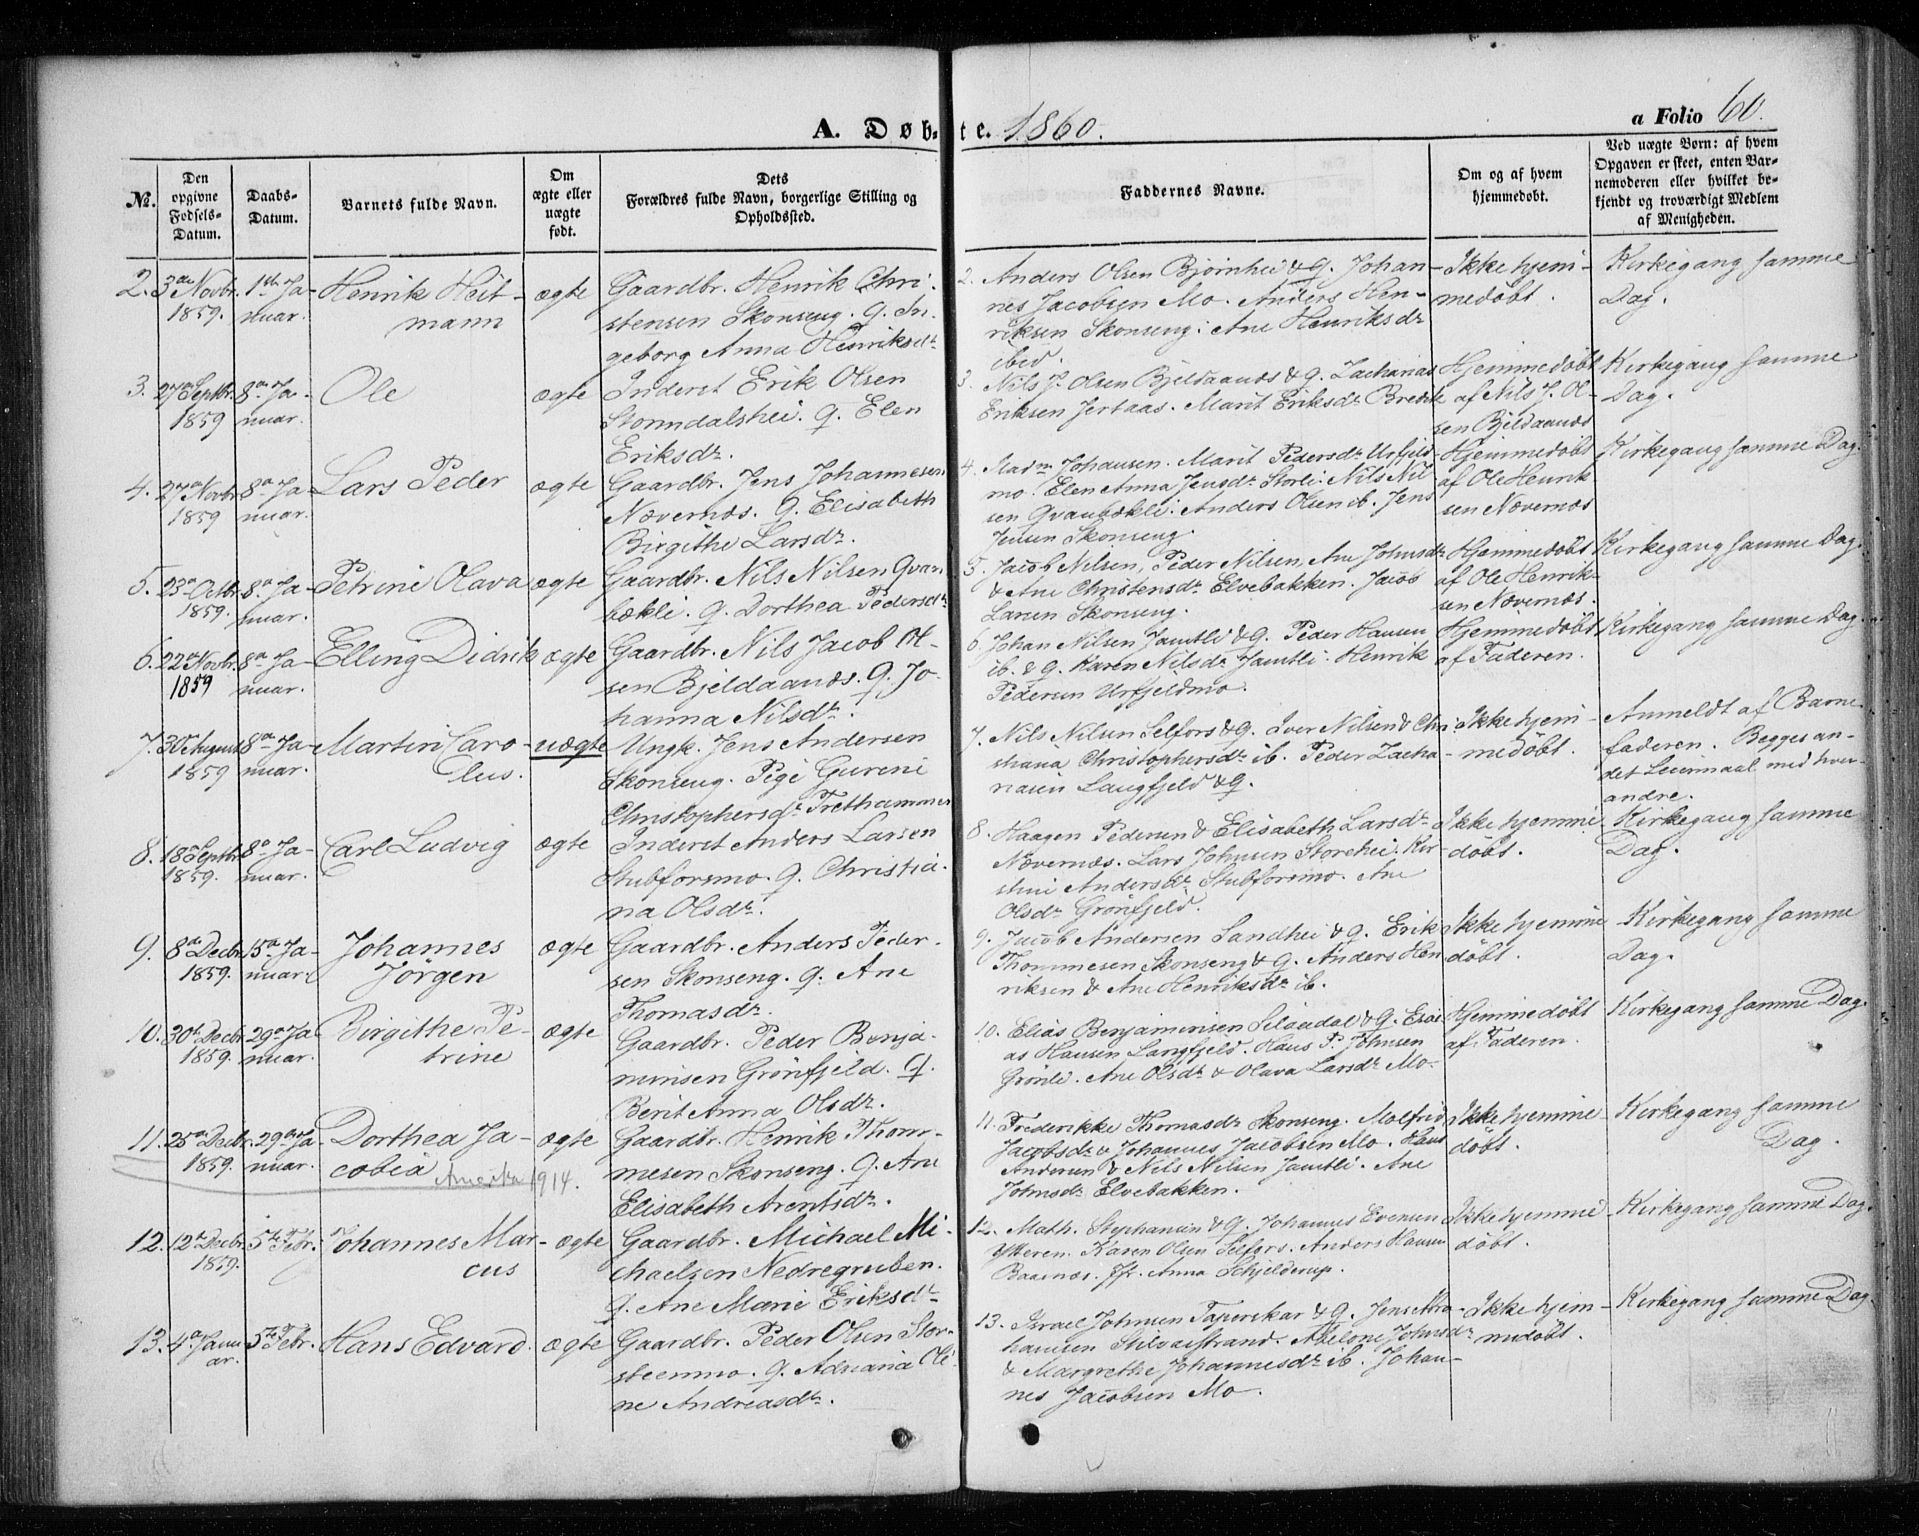 A. Døbte. 1860.
a Folio 60.
No.
Den opgivne Fødsels-Datum.
Daabs-Datum.
Barnets fulde Navn.
Om ægte eller uægte født.
Dets Forældres fulde Navn, borgerlige Stilling og Opholdssted.
Faddernes Navne.
Om og af hvem hjemmedøbt.
Ved uægte Børn: af hvem Opgaven er skeet, enten Barnemoderen eller hvilket bekjendt og troværdigt Medlem af Menigheden.
2. 3de Novbr. 1859. 1ste Januar. Henrik Heitmann ægte
Gaardbr. Henrik Chri-
stensen Skonseng. q. In-
geborg Anna Henriksdr
2. Anders Olsen Bjørnhei & q. Johan-
nes Jacobsen Mo. Anders Hen-
riksen Skonseng. Ane Henriksdr
ibid.
Ikke hjem-
medøbt.
Kirkegang samme
Dag.
3. 27de Septbr. 1859 8de Januar. Ole ægte
Inderst Erik Olsen
Stormdalshei. q. Elen
Eriksdr.
3. Nils J. Olsen Bjeldaanæs & q. Zacharias
Eriksen Jertaas. Marit Eriksdr Bredek
Hjemmedøbt
af Nils J. Ol-
sen Bjeldaanæs
Kirkegang samme
Dag.
4. 27de Novbr. 1859 8de Januar. Lars Peder ægte
Gaardbr. Jens Johannesen
Nævernæs. q. Elisabeth
Birgithe Larsdr.
4. Madm Johansen. Marit Pedersdr Urfjeld-
mo. Elen Anna Jensdr Storli. Nils Nil-
sen Qvanbækli. Anders Olsen ib. Jens
Jensen Skonseng.
Hjemmedøbt
af Ole Henrik-
sen Nævernæs
Kirkegang samme Dag.
5. 23de Octbr. 1859. 8de Januar. Petrine Olava ægte
Gaardbr. Nils Nilsen Qvan-
bækli. q. Dorthea Pedersdr
5. Jacob Nilsen, Peder Nilsen, Ane Johnsdr
& Ane Christensdr Elvebakken. Jacob
Larsen Skonseng.
Hjemmedøbt
af Ole Henrik-
sen Nævernæs.
Kirkegang samme Dag.
6. 22de Novbr. 1859 8de Januar. Elling Didrik ægte
Gaardbr. Nils Jacob Ol-
sen Bjeldaanæs. q. Jo-
hanna Nilsdr.
6. Johan Nilsen Jamtli & q. Peder Hansen
ib. & q. Karen Nilsdr Jamtli. Henrik
Pedersen Urfjeldmo.
Hjemmedøbt
af Faderen.
Kirkegang samme Dag.
7. 30de August 1859 8de Januar. Martin Caro-
lus. uægte
Ungk. Jens Andersen
Skonseng. Pige Gureni
Christophersdr Trethammer
7. Nils Nilsen Selfors & q. Iver Nilsen & Chri-
stiana Christophersdr ib. Peder Zacha-
riasen Langfjeld & q.
Ikke hjem-
medøbt.
Anmeldt af Barne-
faderen. Begges an-
det Leiermaal med hver-
andre.
8. 18de Septbr 1859. 8de Januar. Carl Ludvig ægte
Inderst Anders Larsen
Stubforsmo. q. Christia-
na Olsdr.
8. Haagen Pedersen & Elisabeth Larsdr
Nævernæs. Lars Johnsen Storehei. Kir-
stine Andersdr Stubforsmo. Ane
Olsdr Grönfjeld.
Ikke hjemme-
döbt.
Kirkegang samme
Dag.
9. 8de Decbr. 1859. 15de Januar. Johannes
Jörgen ægte
Gaardbr. Anders Peder-
sen Skonseng. q. Ane
Thomasdr.
9. Jacob Andersen Sandhei & q. Erik
Thommesen Skonseng & q. Anders Hen-
riksen & Ane Henriksdr ib.
Ikke hjemme
döbt.
Kirkegang samme
Dag.
10. 30te Decbr. 1859. 29de Januar. Birgithe Pe-
trine ægte
Gaardbr. Peder Benja-
minsen Grönfjeld. q.
Berit Anna Olsdr.
10. Elias Benjaminsen & q. Esai-
as Hansen Langfjeld. Hans P. Johnsen
Grönli. Ane Olsdr & Olava Larsdr Mo.
Hjemmedøbt
af Faderen.
Kirkegang samme Dag.
11. 25de Decbr. 1859. 29de Januar. Dorthea Ja-
cobia ægte
Amerika 1914.
Gaardbr. Henrik Thom-
mesen Skonseng. q. Ane
Elisabeth Arentsdr.
11. Frederikke Thomasdr Skonseng. Malfrid
Jacobsdr & Johannes Jacobsen Mo. Hans
Andersen & Nils Nilsen Jamtli. Ane
Johnsdr Elvebakken.
Ikke hjemme
døbt.
Kirkegang samme
Dag.
12. 12te Decbr. 1859. 5te Febr. Johannes Mar-
cus ægte
Gaardbr. Michael Mi-
chaelsen Nedregruben.
q. Ane Marie Eriksdr
12. Math. Stephansen & q. Johannes Evensen
Ytteren. Karen Olsen Selfors. Anders Hansen
Baasnæs. Jfr. Anna Schjelderup.
Ikke hjemme
døbt.
Kirkegang samme Dag.
13. 4de Januar. 5te Febr. Hans Edvard. ægte
Gaardbr. Peder Olsen Stor-
steenmo. q. Adriana Oli-
ne Andreasdr.
13. Israel Johnsen Tapeskar & q. Jens Abra-
hamsen Stilvasstrand. Abelone Johnsdr
& Margrethe Johannesdr ib. Johan-
nes Jacobsen Mo.
Ikke hjem-
medøbt.
Kirkegang samme Dag.